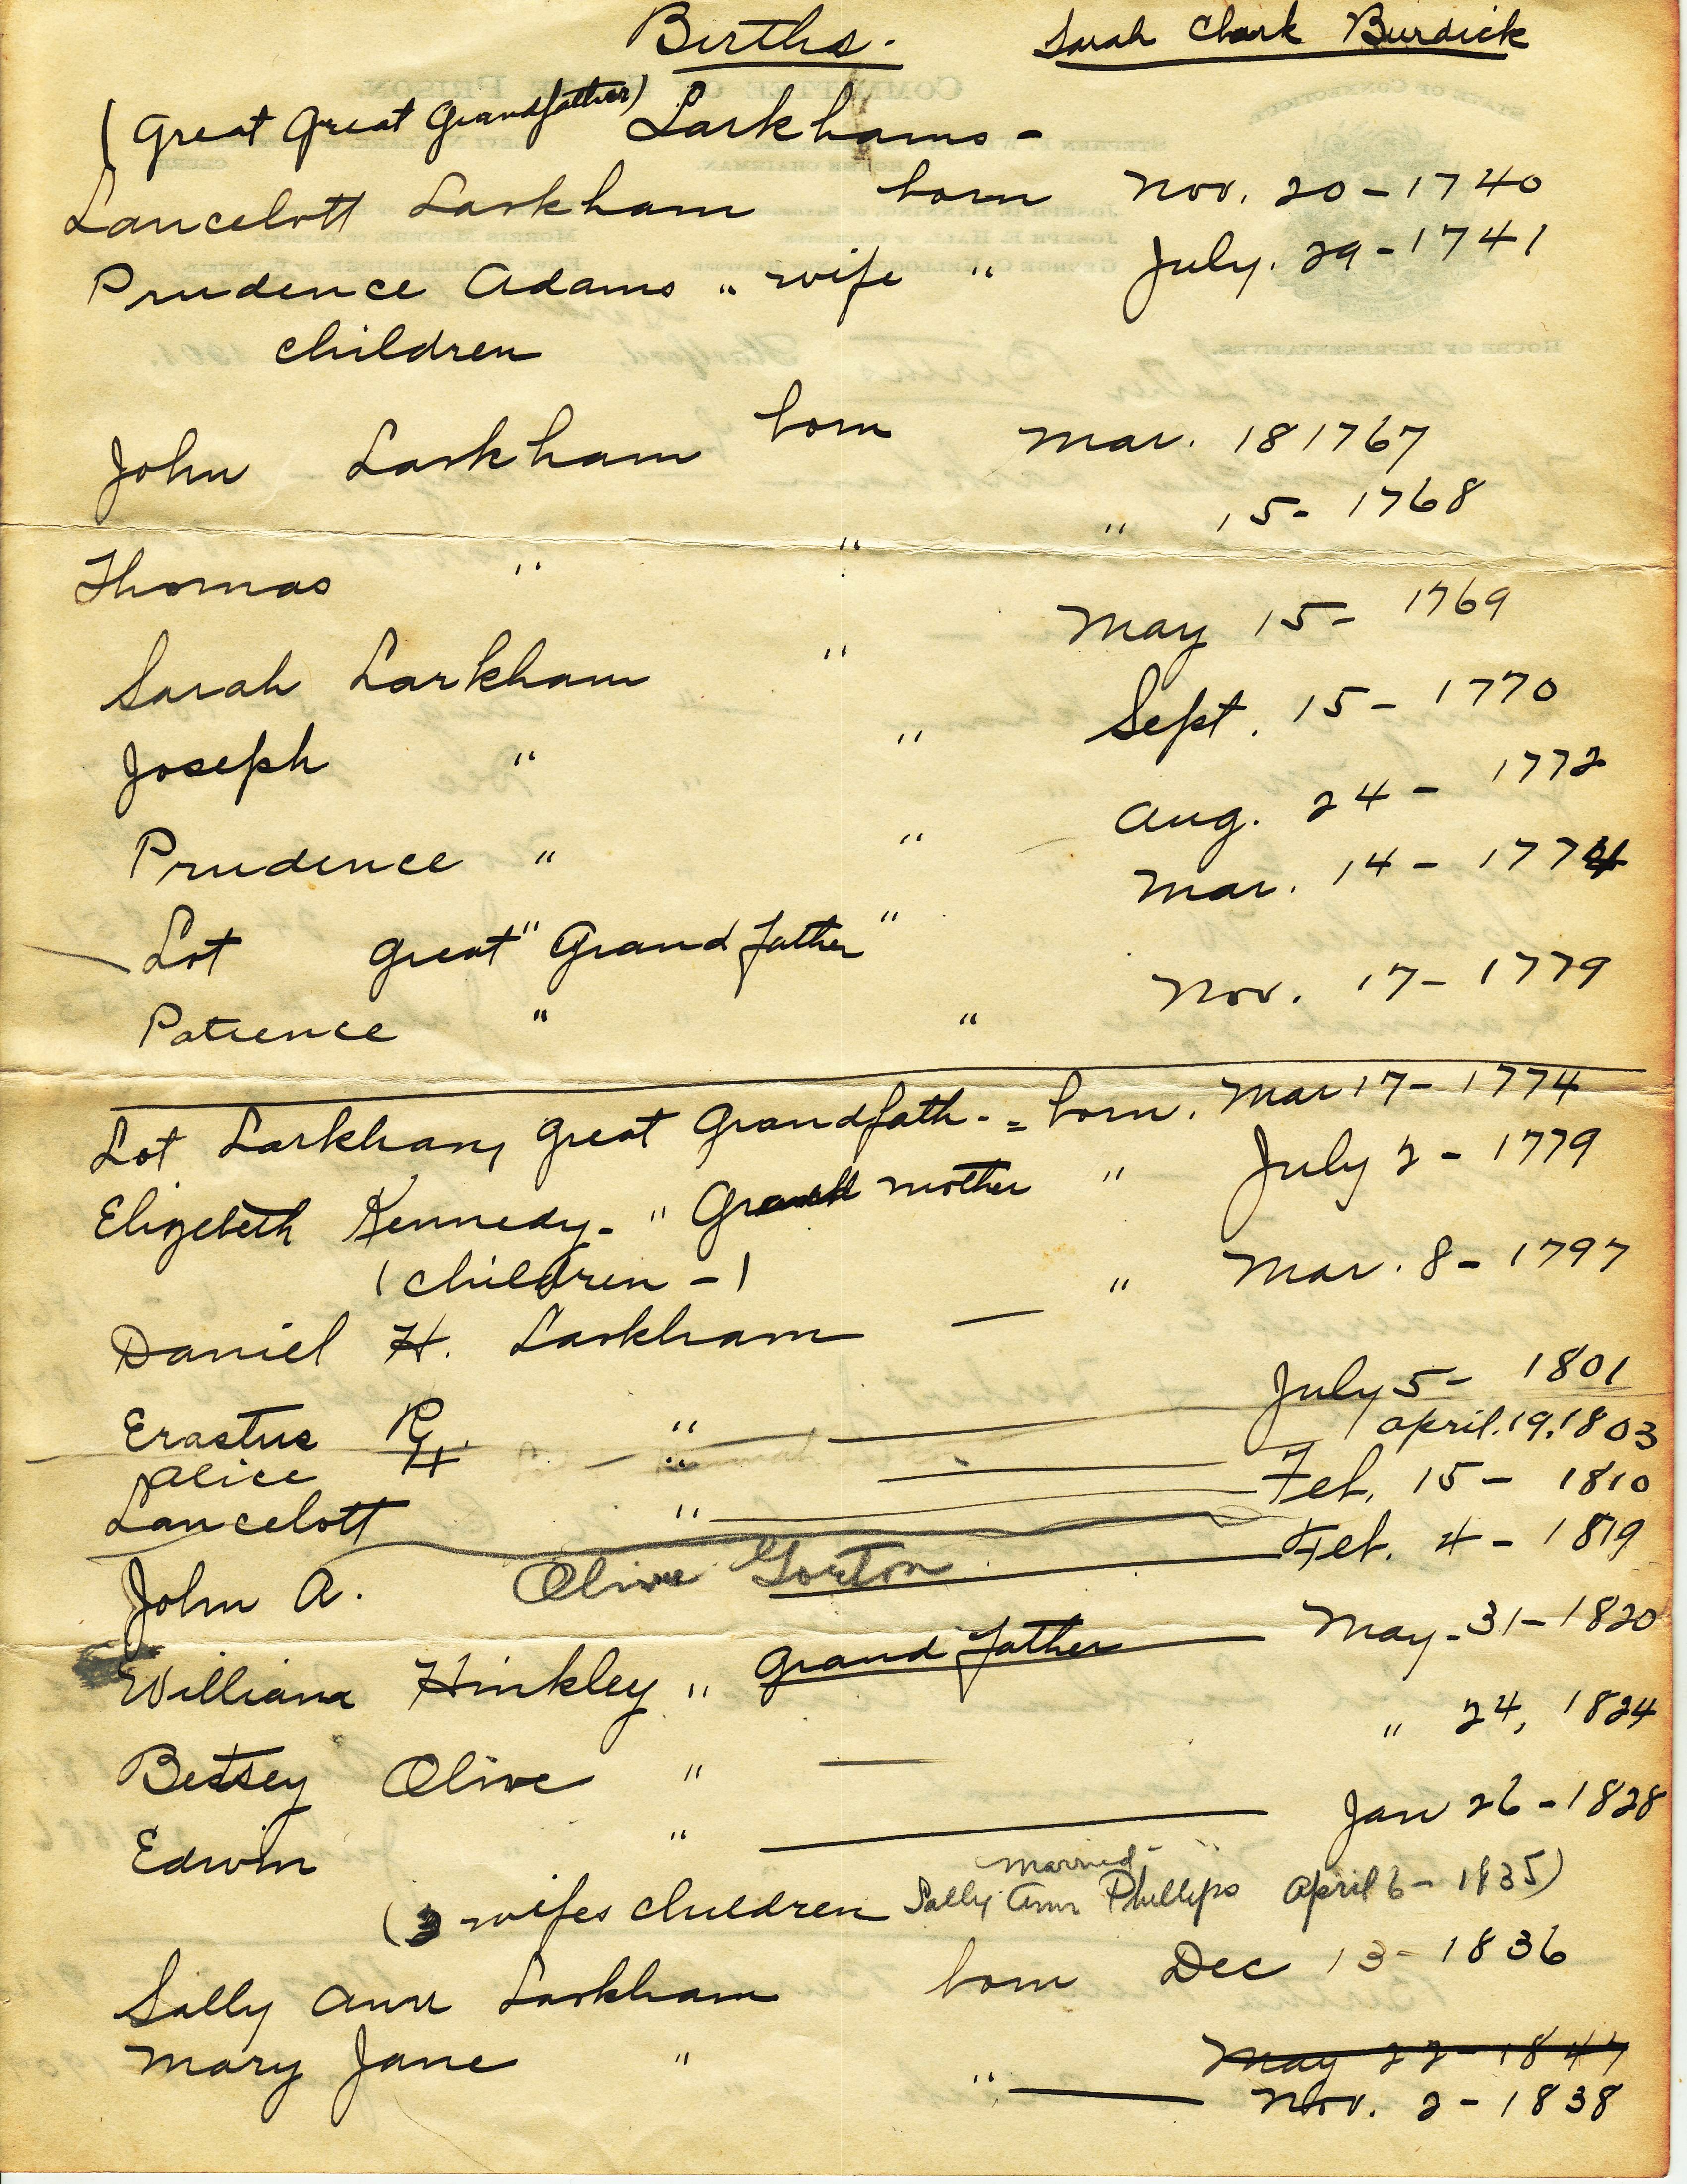 Births. Sarah Clark Burdick
(Great Great Grandfather) Larkhams -
Lancelott Larkham born Nov. 20 - 1740
Prudence Adams " wife " July. 29 - 1741
children
John Larkham born Mar. 18 1767
Thomas " " " 15 - 1768
Sarah Larkham " May 15 - 1769
Joseph " " Sept. 15 - 1770
Prudence " " Aug. 24 - 1772
Lot great " Grand father " Mar. 14 - 1774
Patience " " Nov. 17 - 1779
Lot Larkham, great grandfath - = born. Mar 17 - 1774
Elizebeth Kennedy - " Grand mother " July 2 - 1779
(children -)
Daniel H. Larkham — " Mar. 8 - 1797
Erastus R. " — July 5 - 1801
Alice H " — April. 19, 1803
Lancelott " — Feb. 15 - 1810
John A. Olive Gorton — Feb. 4 - 1819
William Hinkley " Grand father — May - 31 - 1820
Betsey Olive " — " 24, 1824
Edwin " — Jan 26 - 1828
married
(3 wifes children Sally Ann Phillips April 6 - 1835)
Sally Ann Larkham born Dec 13 - 1836
Mary Jane " May 22 - 1847
" — Nov. 2 - 1838